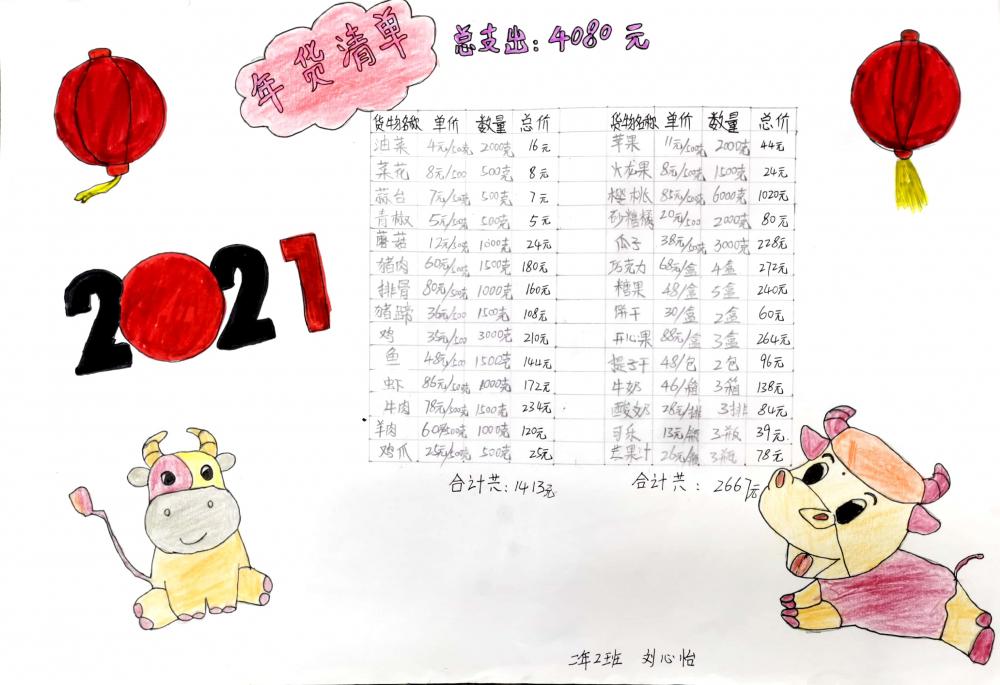 年货清单
总支出：4080元
货物名称 单价 数量 总价
油菜 4元/500克 2000克 16元
菜花 8元/500 500克 8元
蒜台 7元/500克 500克 7元
青椒 5元/500克 500克 5元
蘑菇 12元/500克 1000克 24元
猪肉 60元/500克 1500克 180元
排骨 80元/500克 1000克 160元
猪蹄 36元/500 1500克 108元
鸡 35元/500 3000克 210元
鱼 48元/500 1500克 144元
虾 86元/500克 1000克 172元
牛肉 78元/500克 1500克 234元
羊肉 60元/500克 1000克 120元
鸡爪 25元/500克 500克 25元
合计共：1413元
货物名称 单价 数量 总价
苹果 11元/500克 2000克 44元
火龙果 8元/500克 1500克 24元
樱桃 85元/500克 6000克 1020元
砂糖橘 20元/500 2000克 80元
瓜子 38元/500克 3000克 228元
巧克力 68元/盒 4盒 272元
糖果 48/盒 5盒 240元
饼干 30/盒 2盒 60元
开心果 88元/盒 3盒 264元
提子干 48/包 2包 96元
牛奶 46/箱 3箱 138元
酸奶 28元/排 3排 84元
可乐 13元/瓶 3瓶 39元
芒果汁 26元/瓶 3瓶 78元
合计共：2667元
2021
二年2班 刘心怡